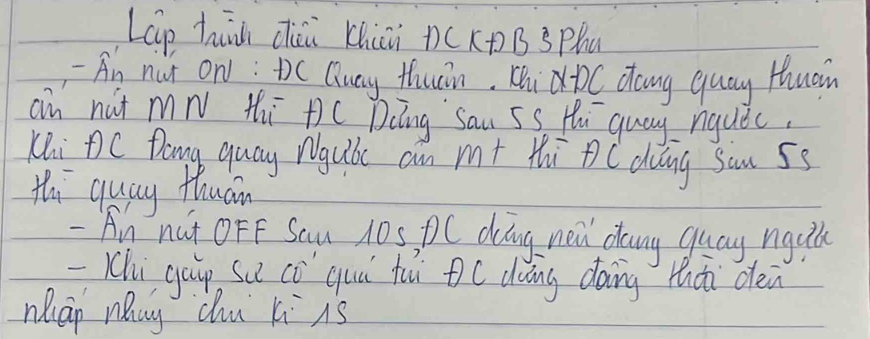 Lập trình điều khiển ĐC KĐB 3 Pha
- Ấn nút ON : ĐC Quay thuận . Khi ĐC đang quay thuận
ấn nút MN thì ĐC Dừng sau 5s thì quay ngược .
Khi ĐC Đang quay Ngược ấn MT thì ĐC dừng sau 5s
thì quay thuận
- Ấn nút OFF sau 10s ĐC dừng nếu đang quay ngược
- Khi gặp sự cố quá tải ĐC dừng đồng thời đèn
nhấp nháy chu kì 1s